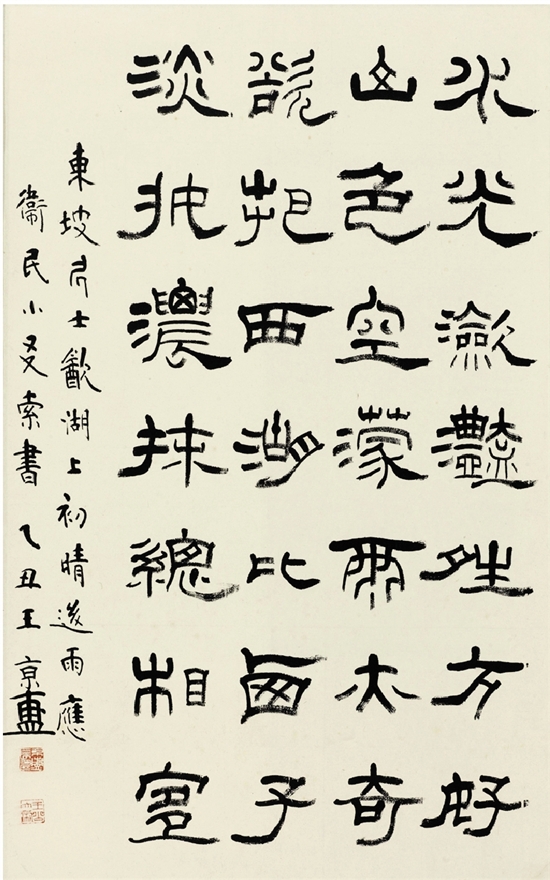 水光瀲灩晴方好
山色空濛雨亦奇
欲把西湖比西子
淡妝濃抹總相宜
東坡居士㱃湖上初晴後雨應
衞民小友索書 乙丑王京盙